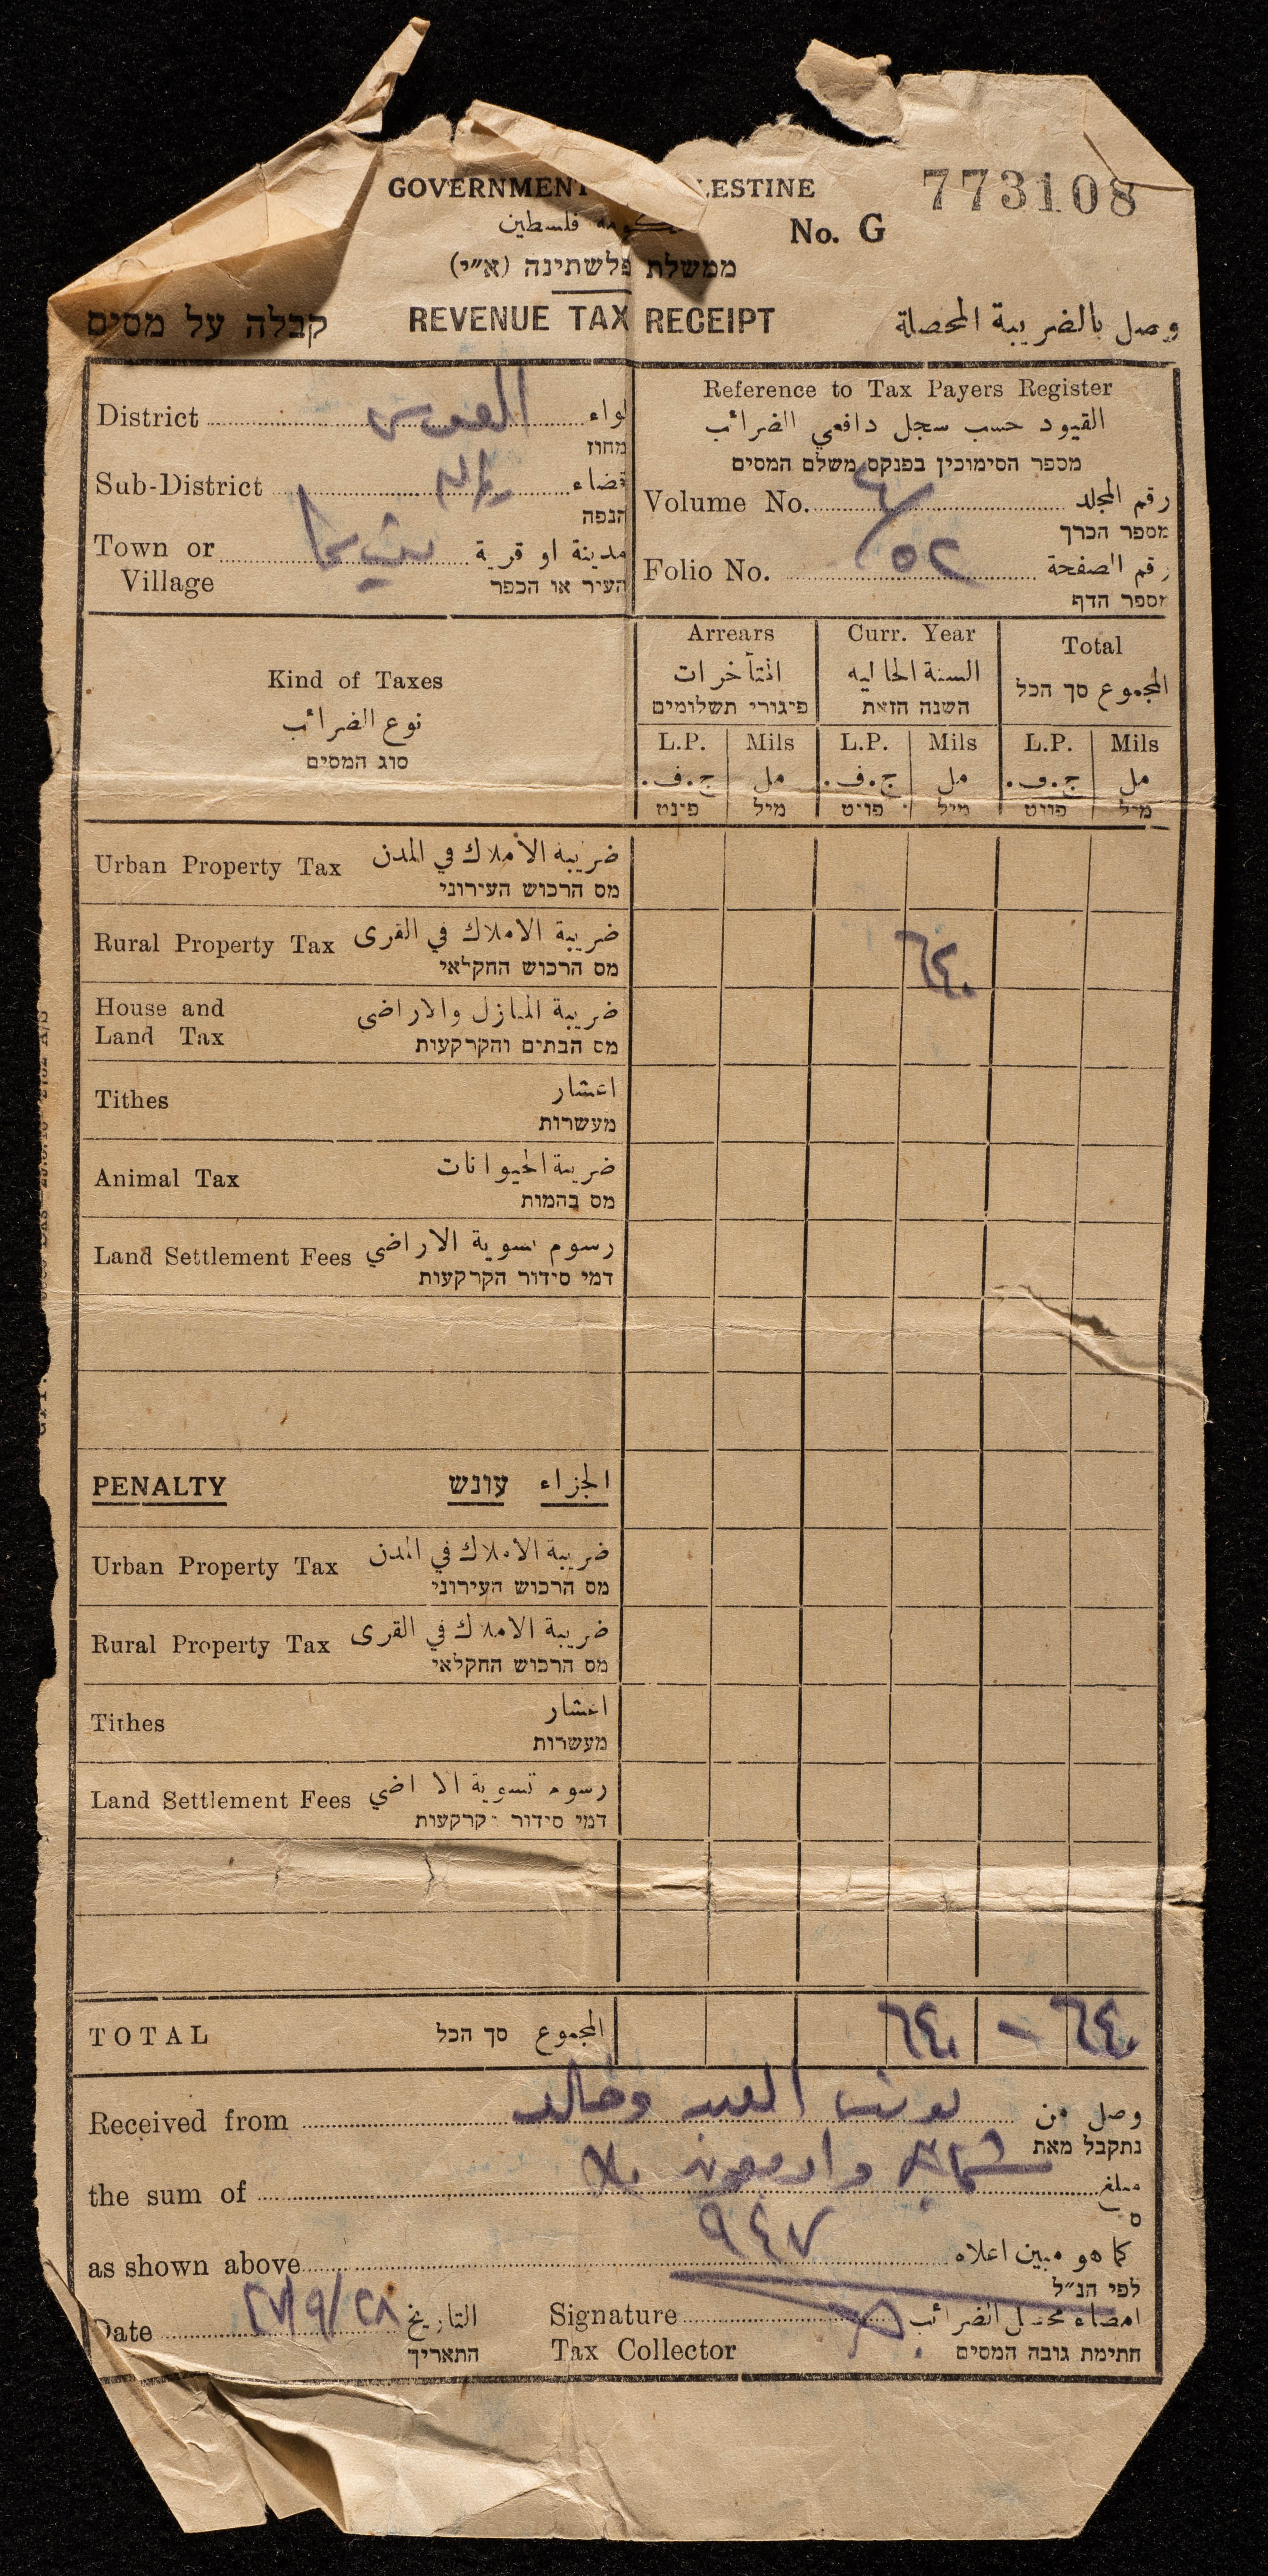 GOVERNMENT LESTINE
فلسطين
No. G 773108
ממשלת פלשתינה (א״י)
קבלה על מסים REVENUE TAX RECEIPT وصل بالضريبة المحصلة
District القدس لواء
מחוז
Sub-District قضاء
הנפה
Town or مدينة او قرية
Village העיר או הכפר
Reference to Tax Payers Register
القيود حسب سجل دافعي الضرائب
מספר הסימוכין בפנקס משלם המסים
Volume No. رقم المجلد
מספר הכרך
Folio No. ٥٢ رقم الصفحة
מספר הדף
Kind of Taxes
نوع الضرائب
סוג המסים
Arrears Curr. Year Total
المتأخرات السنة الحاليه المجموع סך הכל
פיגורי תשלומים השנה הזאת
L.P. Mils L.P. Mils L.P. Mils
ج.ف. مل ج.ف. مل ج.ف. مل
פונט מיל פונט מיל פונט מיל
Urban Property Tax ضريبة الأملاك في المدن
מס הרכוש העירוני
Rural Property Tax ضريبة الاملاك في القرى ٦٤٠
מס הרכוש החקלאי
House and ضريبة المنازل والاراضي
Land Tax מס הבתים והקרקעות
Tithes اعشار
מעשרות
Animal Tax ضريبة الحيوانات
מס בהמות
Land Settlement Fees رسوم تسوية الاراضي
דמי סידור הקרקעות
PENALTY עונש الجزاء
Urban Property Tax ضريبة الاملاك في المدن
מס הרכוש העירוני
Rural Property Tax ضريبة الاملاك في القرى
מס הרכוש החקלאי
Tithes اعشار
מעשרות
Land Settlement Fees رسوم تسوية الا اضي
דמי סידור קרקעות
TOTAL סך הכל المجموع ٦٤٠ — ٦٤٠
Received from العبد وخالد وصل من
נתקבל מאת
the sum of ستماية واربعون ملا مبلغ
ס
as shown above ٩٤٧ كما هو مبين اعلاه
לפי הנ״ל
Date التاريخ Signature امضاء محصل الضرائب
התאריך Tax Collector חתימת גובה המסים